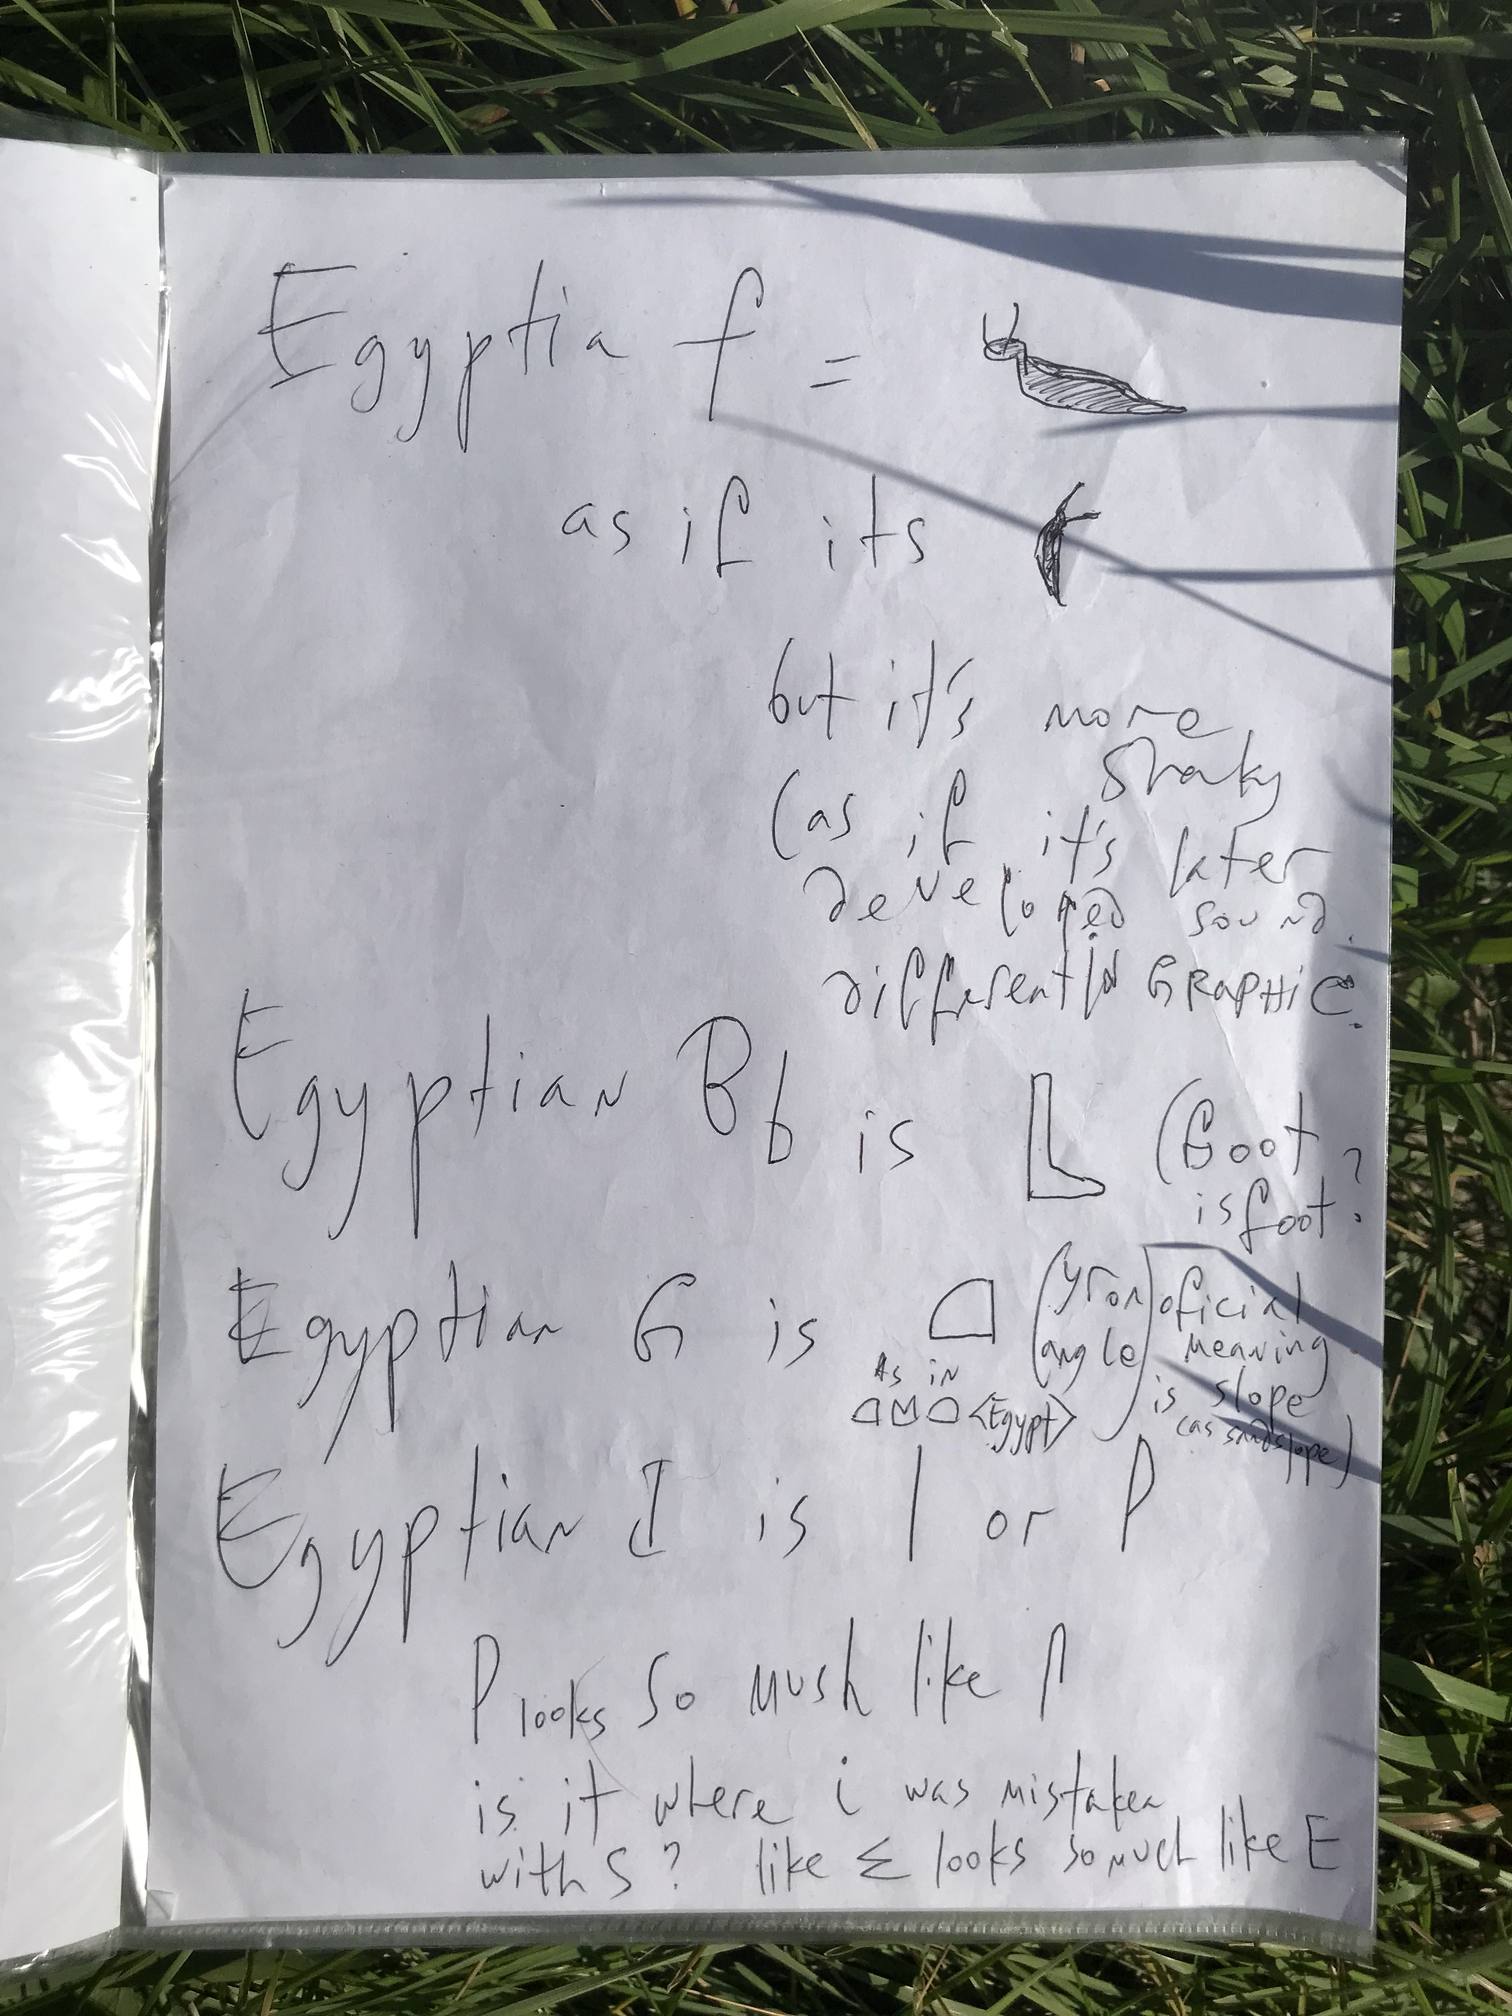 Egyptia f =
as if its
but it's more
shaky
(as if it's later
developed sound
differentIN GRAPHIC.
Egyptian B b is (Boot
is foot?
Egyptian G is (yron angle) oficial
meaning
is slope
(as sandslope)
As in
<Egypt>
Egyptian I is | or
looks so mush like
is it where i was mistaken
with S? like Σ looks so much like E